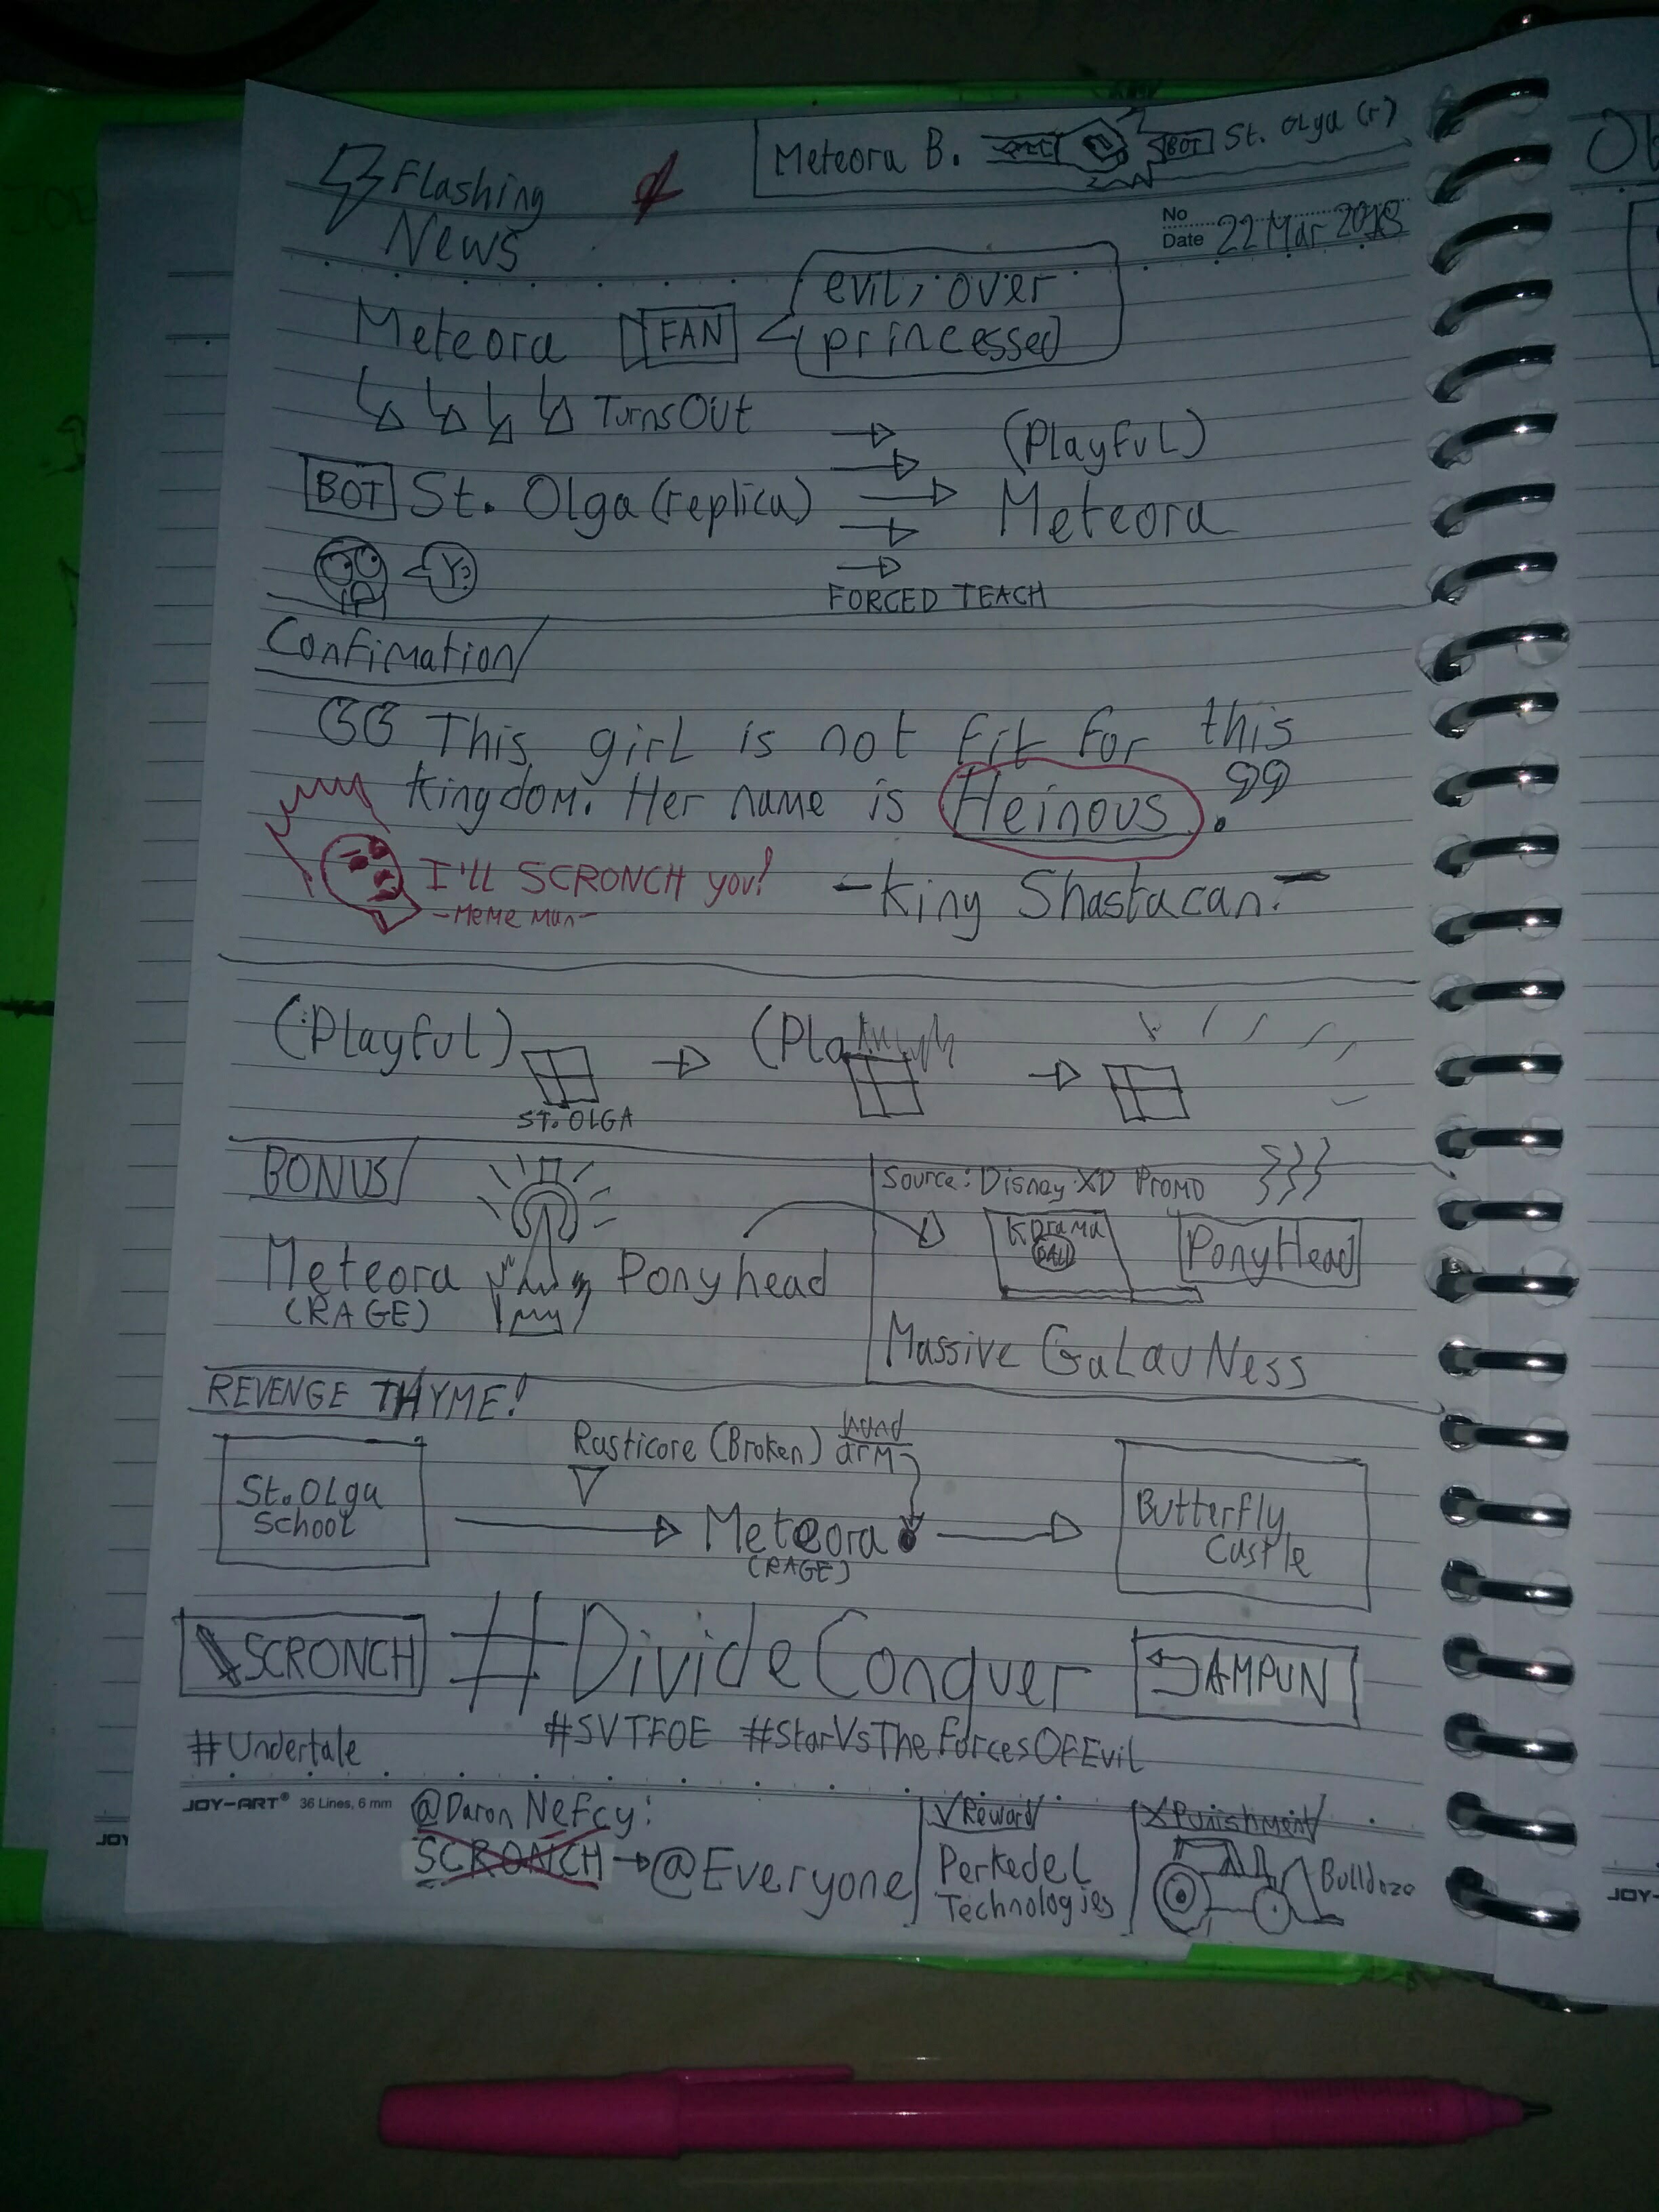 Meteora B. BOT St. OLga (r)
Flashing
News
No
Date 22 Mar 2018
evil, over
princessed
Meteora FAN
TurnsOut
(PLayfuL)
BOT St. Olga (replica) Meteora
Y?
FORCED TEACH
Confimation
This girL is not Fit For this
kingdom. Her name is Heinous.
I'LL SCRONCH you!
-MeMe Man-
-King Shastacan-
(PLayfuL) (Pla
ST. OLGA
BONUS
Source: Disney XD PROMO
KDrama
PonyHead
Meteora Ponyhead
(RAGE)
Massive GaLauNess
REVENGE THYME!
Rasticore (Broken) hand
arm
St. OLga
SchooL
Meteora
(RAGE)
ButterFly
Castle
SCRONCH #DivideConquer AMPUN
#SVTFOE #StarVsTheForcesOFEvil
#Undertale
JOY-ART® 36 Lines, 6 mm
@Daron Nefcy:
SCRONCH → @Everyone
√ Reward
PerkedeL
Technologies
X Punishment
Bulldozo